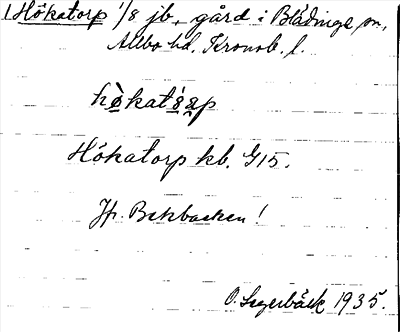 1 Hökatorp 1/8 jb.-gård i Blädinge sn,
Allbo hd. Kronob. l.
hö̀katǻrp
Hökatorp kb. G15.
Jfr. Bekbacken!
O. Lagerbäck 1935.